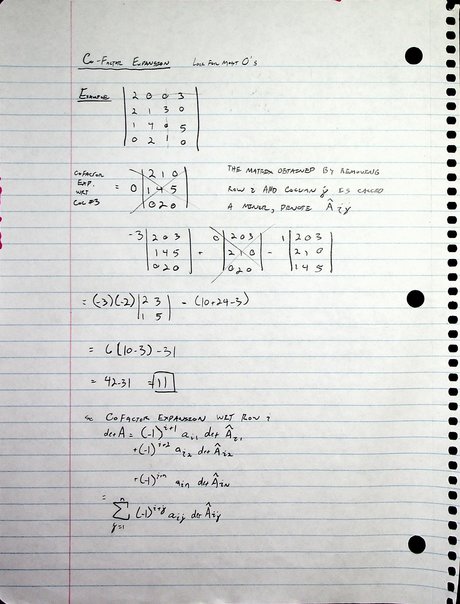 Co-Factor Expansion Look For Most 0's
Example
| 2 0 0 3 |
| 2 1 3 0 |
| 1 4 0 5 |
| 0 2 1 0 |
Cofactor Exp. WRT Col #3 = 0 | 2 1 0 |
| 1 4 5 |
| 0 2 0 |
The matrix obtained by removing
row i and column j is called
a minor, denote Â ij
-3 | 2 0 3 | + 0 | 2 0 3 | - 1 | 2 0 3 |
| 1 4 5 | | 2 1 0 | | 2 1 0 |
| 0 2 0 | | 0 2 0 | | 1 4 5 |
= (-3)(-2) | 2 3 | - (10+24-3)
| 1 5 |
= 6(10-3) - 31
= 42-31 = 11
∴ Cofactor Expansion WRT Row i
det A = (-1)^{i+1} a_{i1} det Â_{i1}
+(-1)^{i+2} a_{i2} det Â_{i2}
+(-1)^{i+n} a_{in} det Â_{iN}
= ∑_{j=1}^{n} (-1)^{i+j} a_{ij} det Â_{ij}